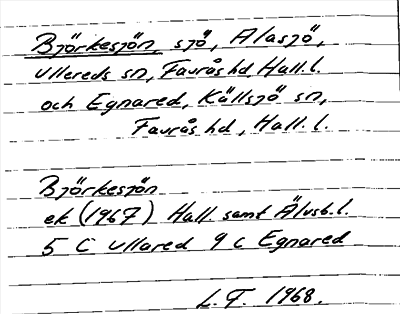 Björkesjön, sjö, Älasjö,
Ullereds sn, Faurås hd, Hall. l.
och Egnared, Källsjö sn,
Faurås hd, Hall. l.
Björkesjön
ek (1967) Hall. samt Älvsb. l.
5 C Ullared 9 c Egnared
L. F. 1968.